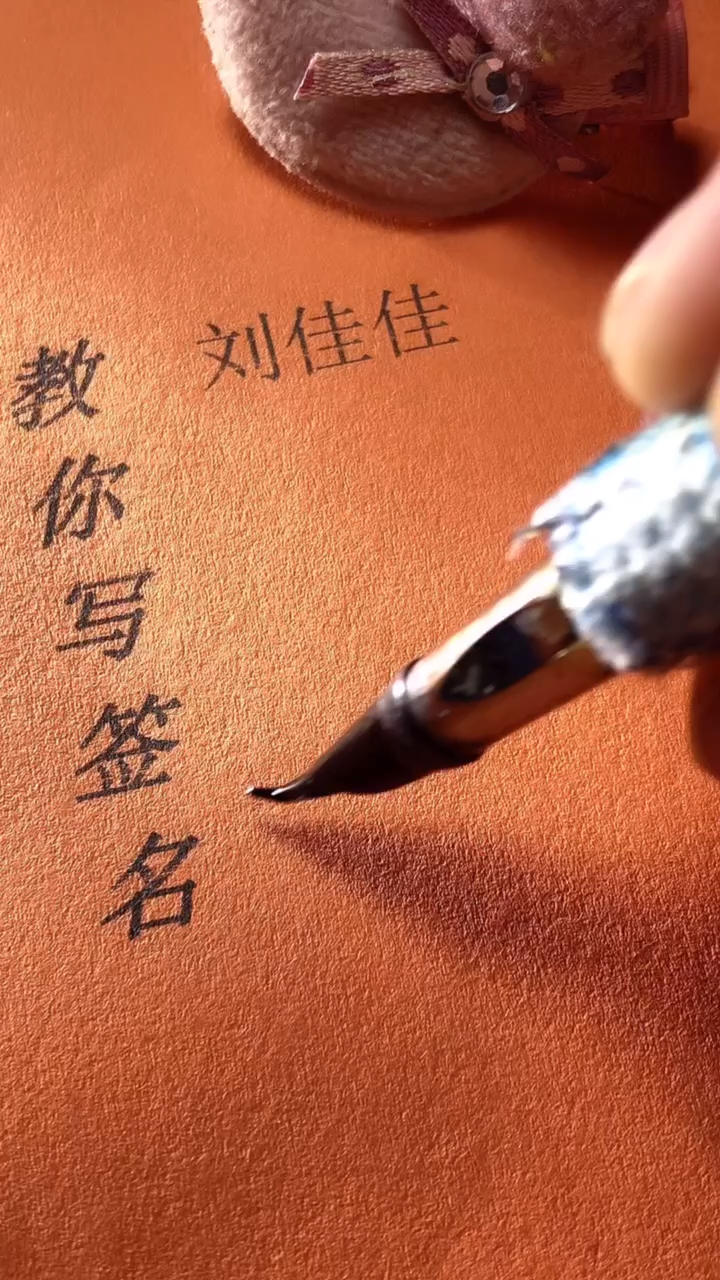 刘佳佳
教你写签名